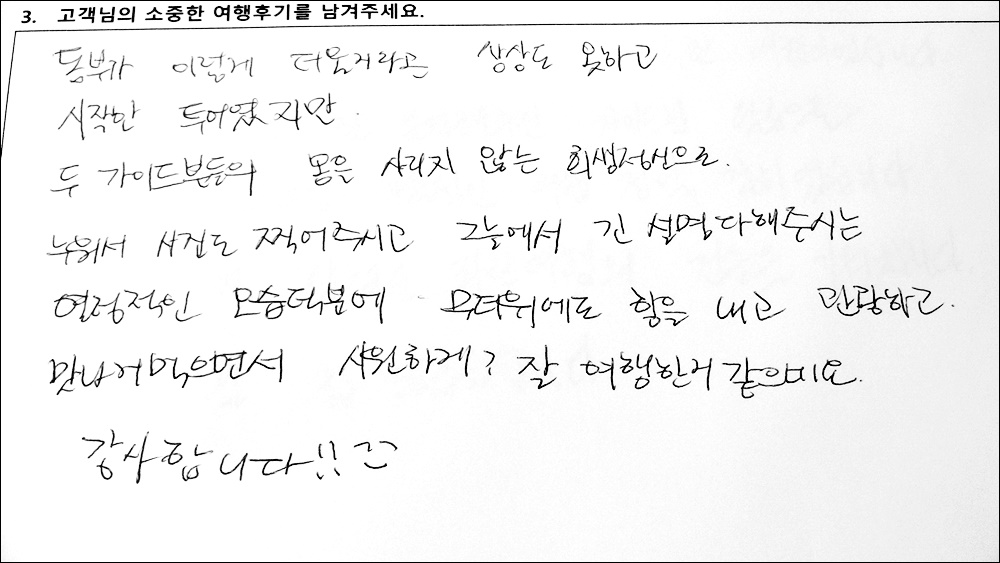 3. 고객님의 소중한 여행후기를 남겨주세요.
동부가 이렇게 더울거라곤 상상도 못하고
시작한 투어였지만.
두 가이드분들의 몸을 사리지 않는 희생정신으로.
누워서 사진도 찍어주시고 그늘에서 긴 설명 다해주시는
열정적인 모습덕분에 무더위에도 힘을 내고 관람하고.
맛난거먹으면서 시원하게? 잘 여행한거 같으네요.
감사합니다!!